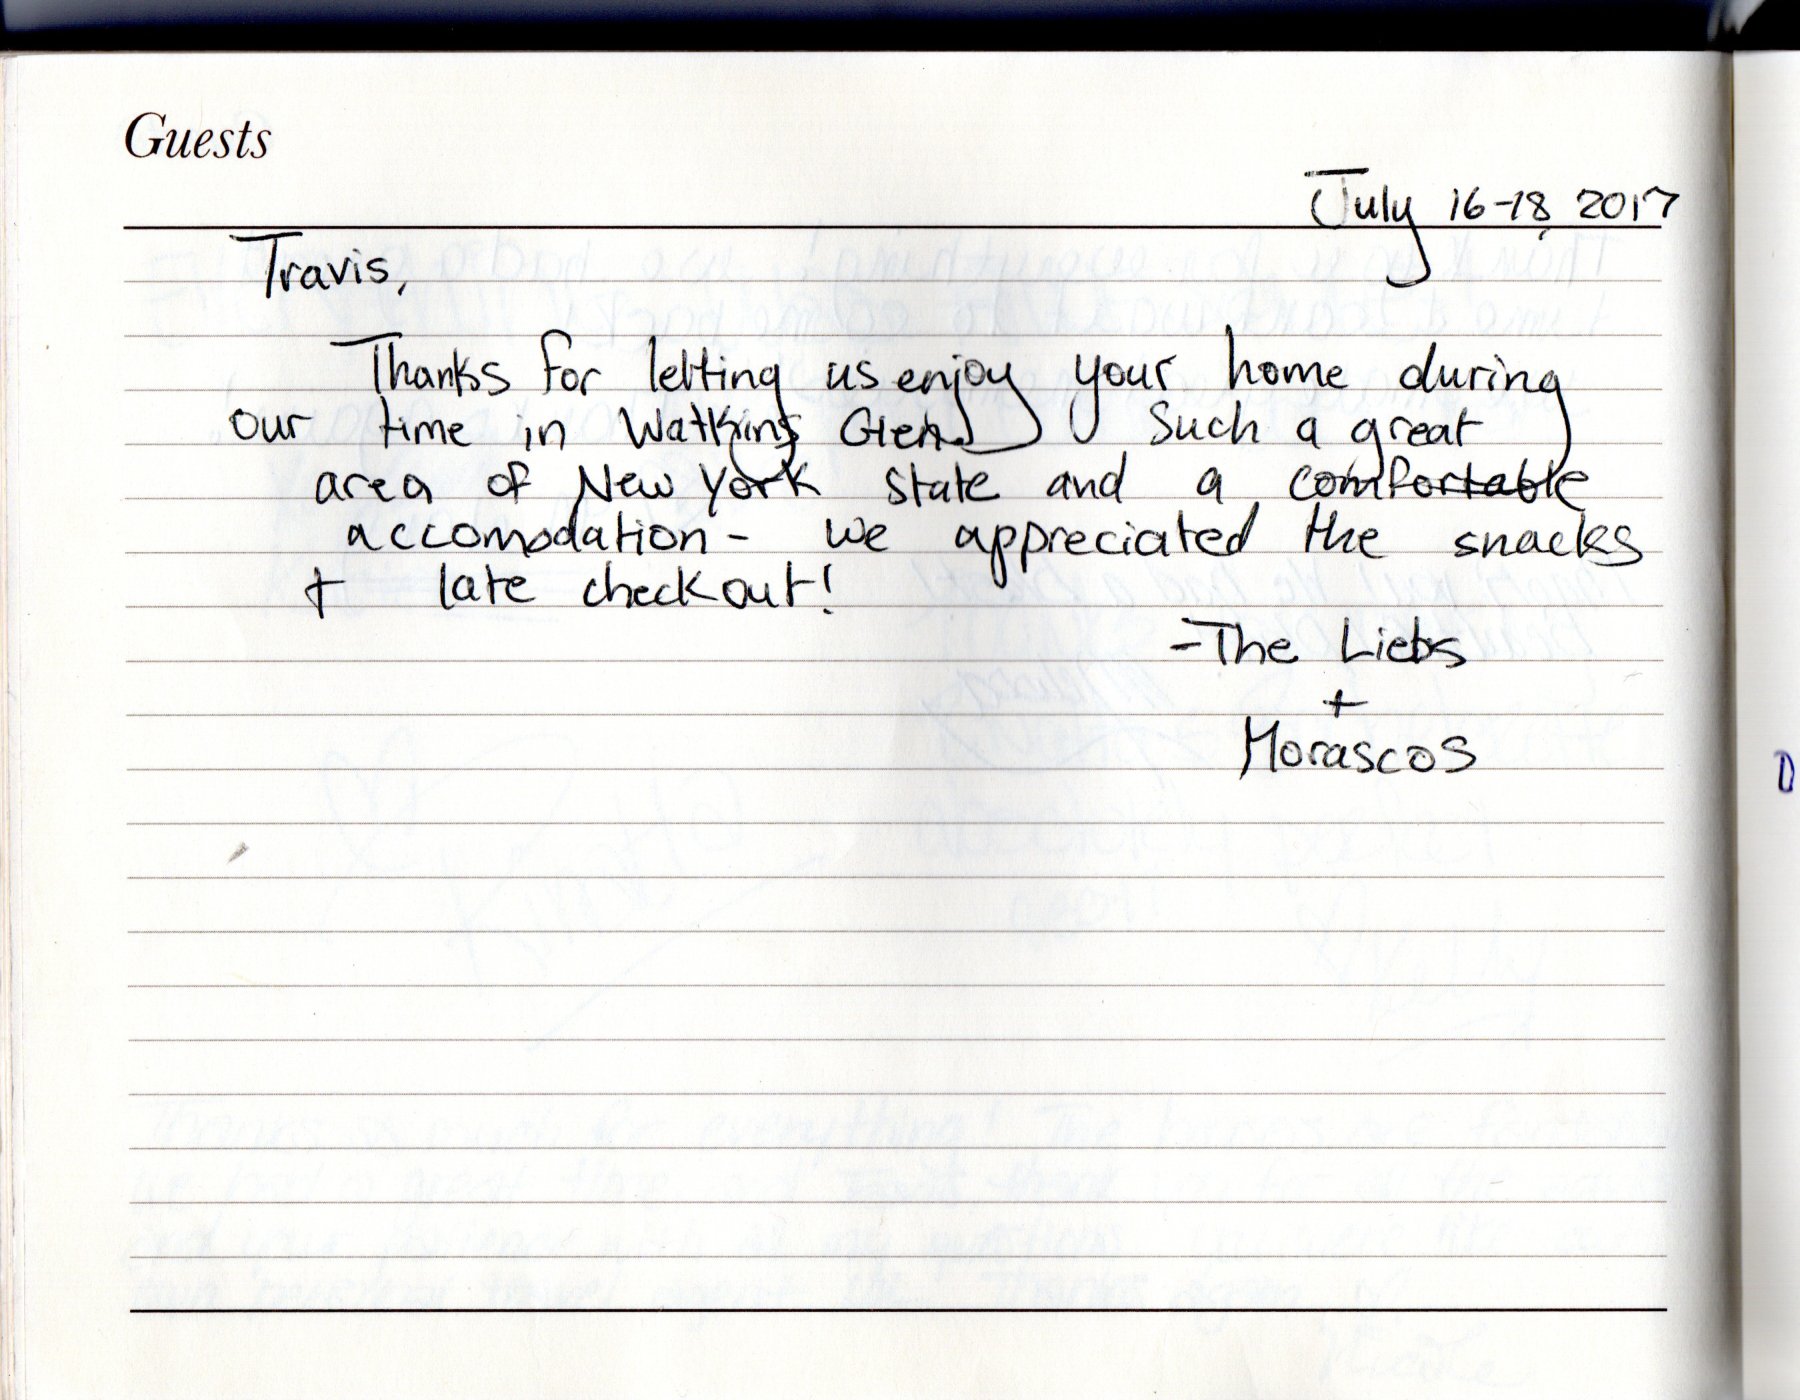 Guests
July 16-18, 2017
Travis,
Thanks for letting us enjoy your home during
our time in Watkins Glen. Such a great
area of New York State and a comfortable
accomodation - we appreciated the snacks
+ late checkout!
- The Liebs
+
Morascos
D